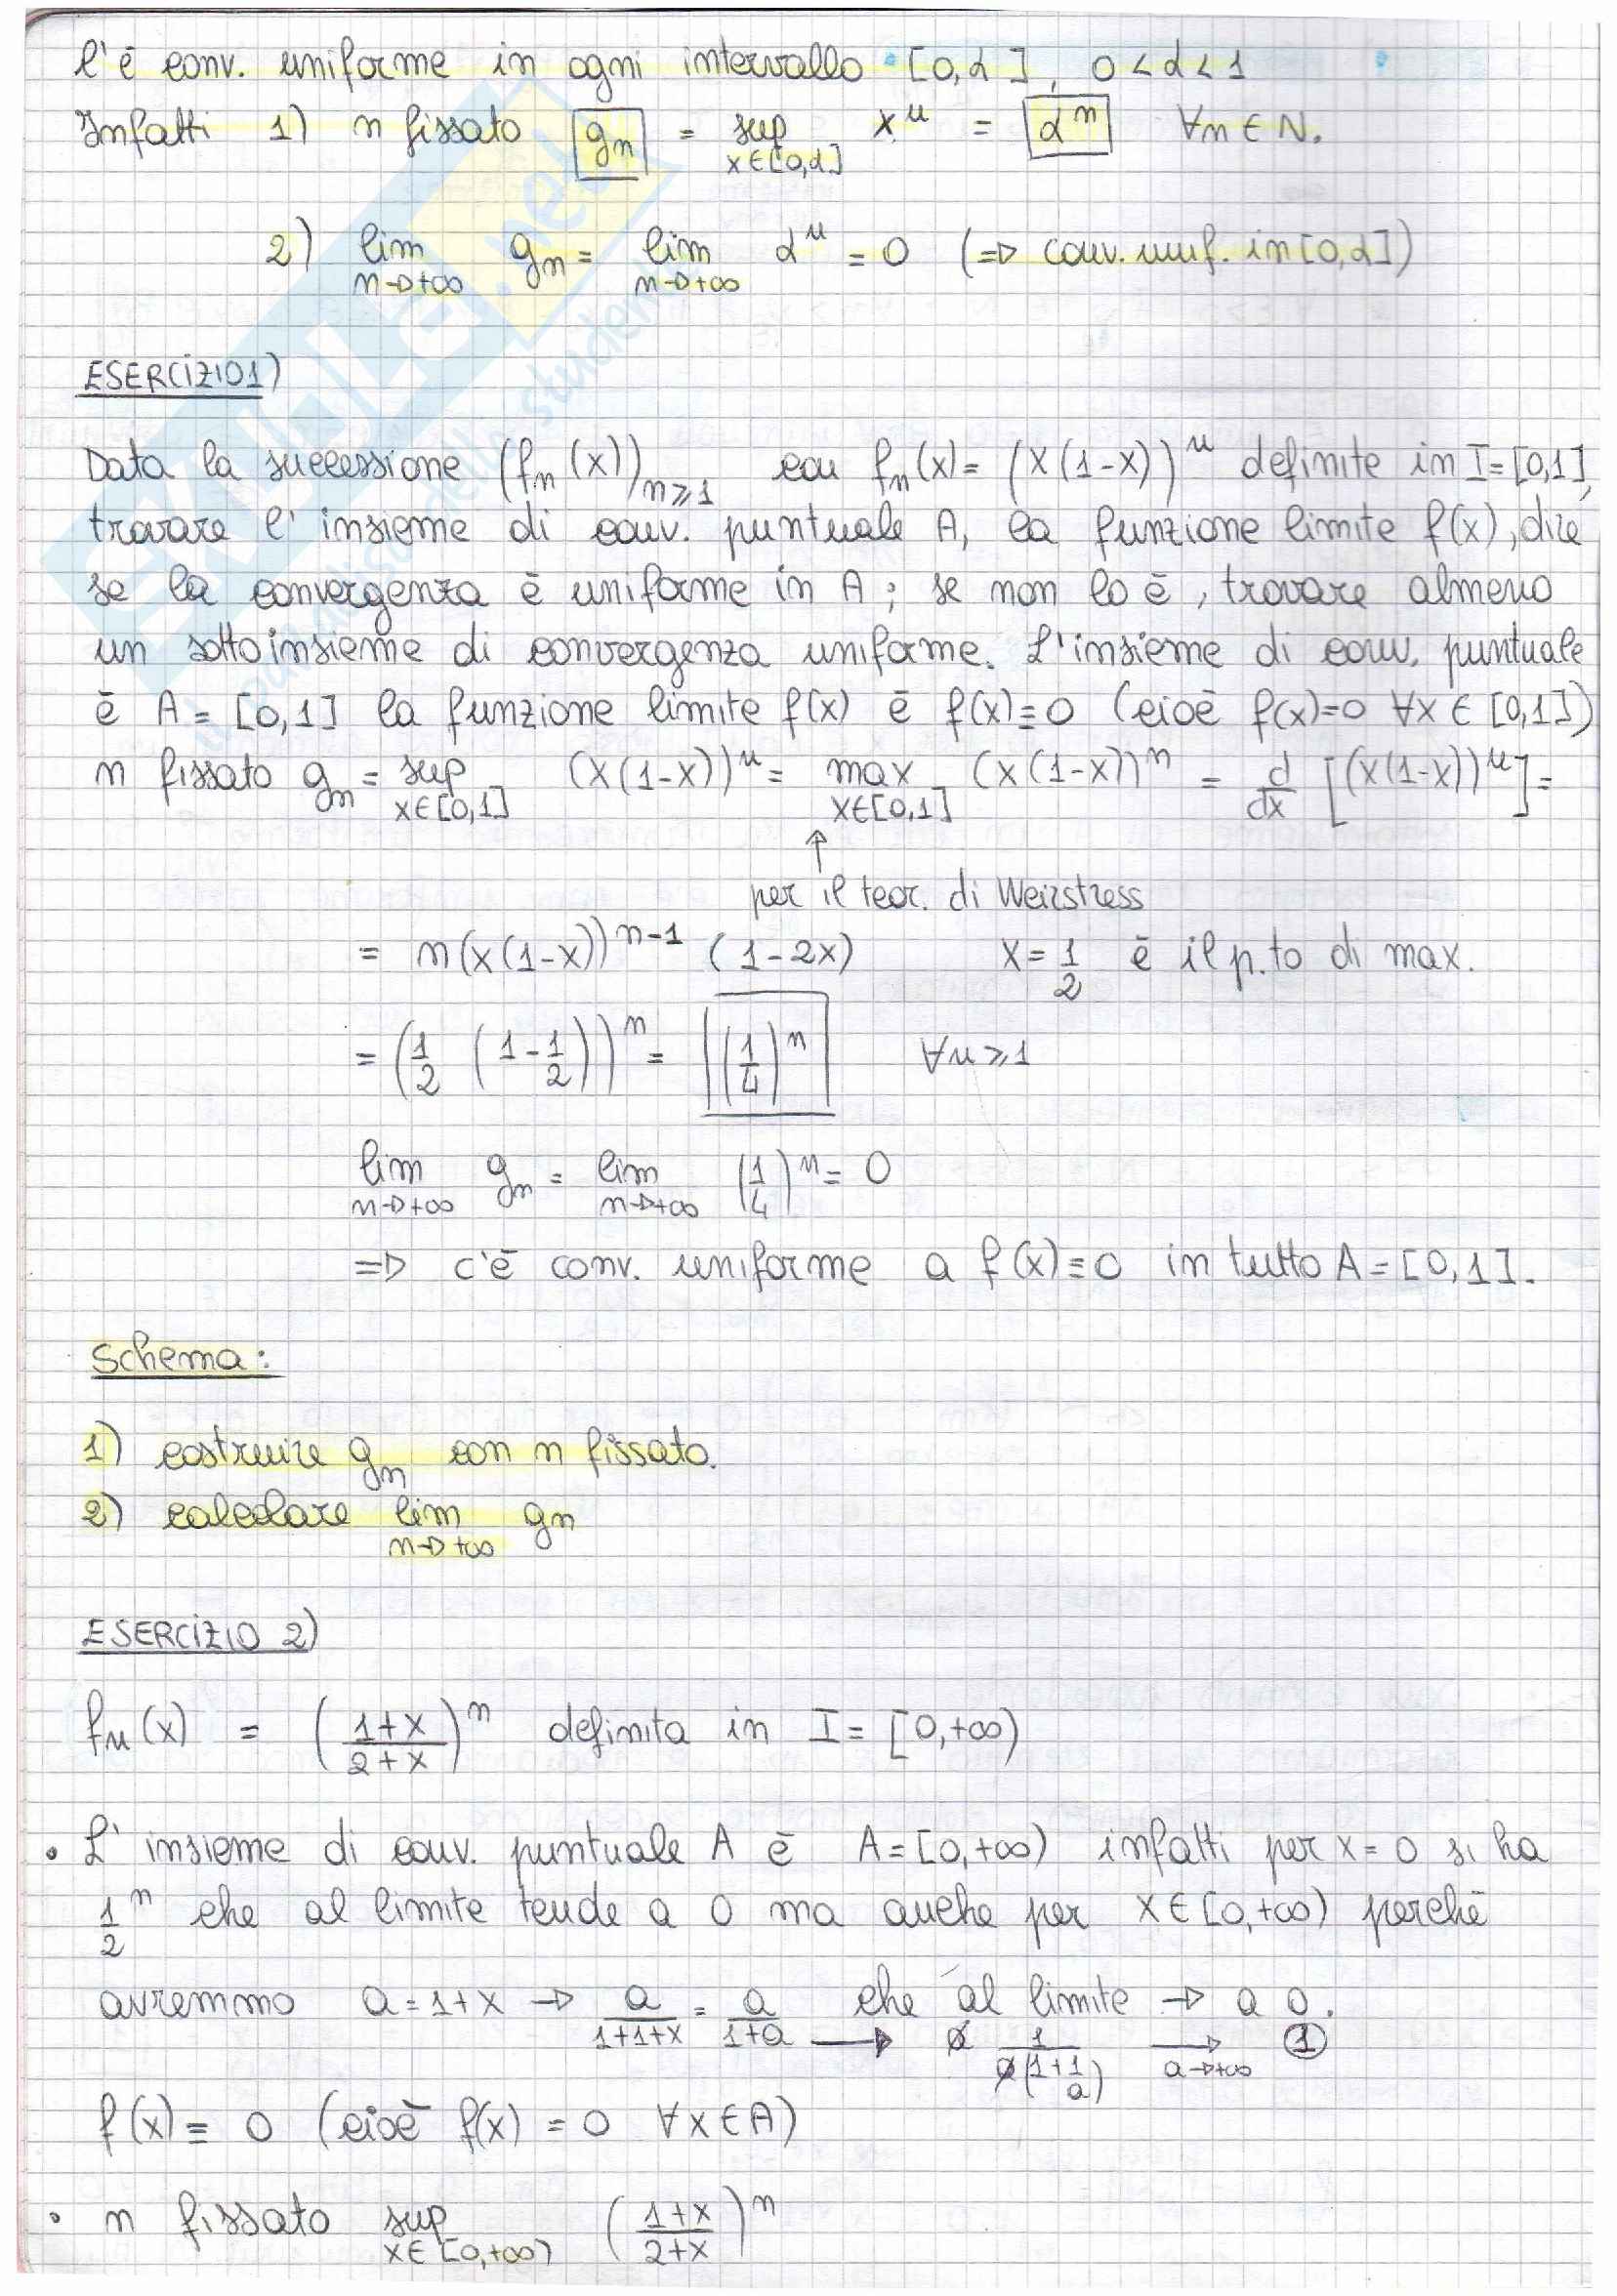 C'è conv. uniforme in ogni intervallo [0,α], 0<α<1
Infatti 1) n fissato gₙ = sup x∈[0,α] xⁿ = αⁿ ∀n∈N.
2) lim n→+∞ gₙ = lim n→+∞ αⁿ = 0 (⇒ conv. unif. in [0,α])
ESERCIZIO 1)
Data la successione (fₙ(x))n≥1 con fₙ(x)= (x(1-x))ⁿ definite in I=[0,1],
trovare l'insieme di conv. puntuale A, la funzione limite f(x), dire
se la convergenza è uniforme in A; se non lo è, trovare almeno
un sottoinsieme di convergenza uniforme. L'insieme di conv. puntuale
è A=[0,1] la funzione limite f(x) è f(x)≡0 (cioè f(x)=0 ∀x∈[0,1])
n fissato gₙ = sup x∈[0,1] (x(1-x))ⁿ = max x∈[0,1] (x(1-x))ⁿ = d/dx [(x(1-x))ⁿ] =
↑
per il teor. di Weirstress
= n(x(1-x))ⁿ⁻¹ (1-2x) x=1/2 è il p.to di max.
= (1/2 (1-1/2))ⁿ = (1/4)ⁿ ∀n≥1
lim n→+∞ gₙ = lim n→+∞ (1/4)ⁿ = 0
⇒ c'è conv. uniforme a f(x)≡0 in tutto A=[0,1].
Schema:
1) costruire gₙ con n fissato.
2) calcolare lim n→+∞ gₙ
ESERCIZIO 2)
fₙ(x) = ((1+x)/(2+x))ⁿ definita in I=[0,+∞)
• L'insieme di conv. puntuale A è A=[0,+∞) infatti per x=0 si ha
1/2ⁿ che al limite tende a 0 ma anche per x∈[0,+∞) perchè
avremmo a=1+x → a/(1+1+x) = a/(1+a) che al limite → a 0.
→ a 1/(a(1+1/a)) → a→+∞ 1
f(x)≡0 (cioè f(x)=0 ∀x∈A)
• n fissato sup x∈[0,+∞) ((1+x)/(2+x))ⁿ